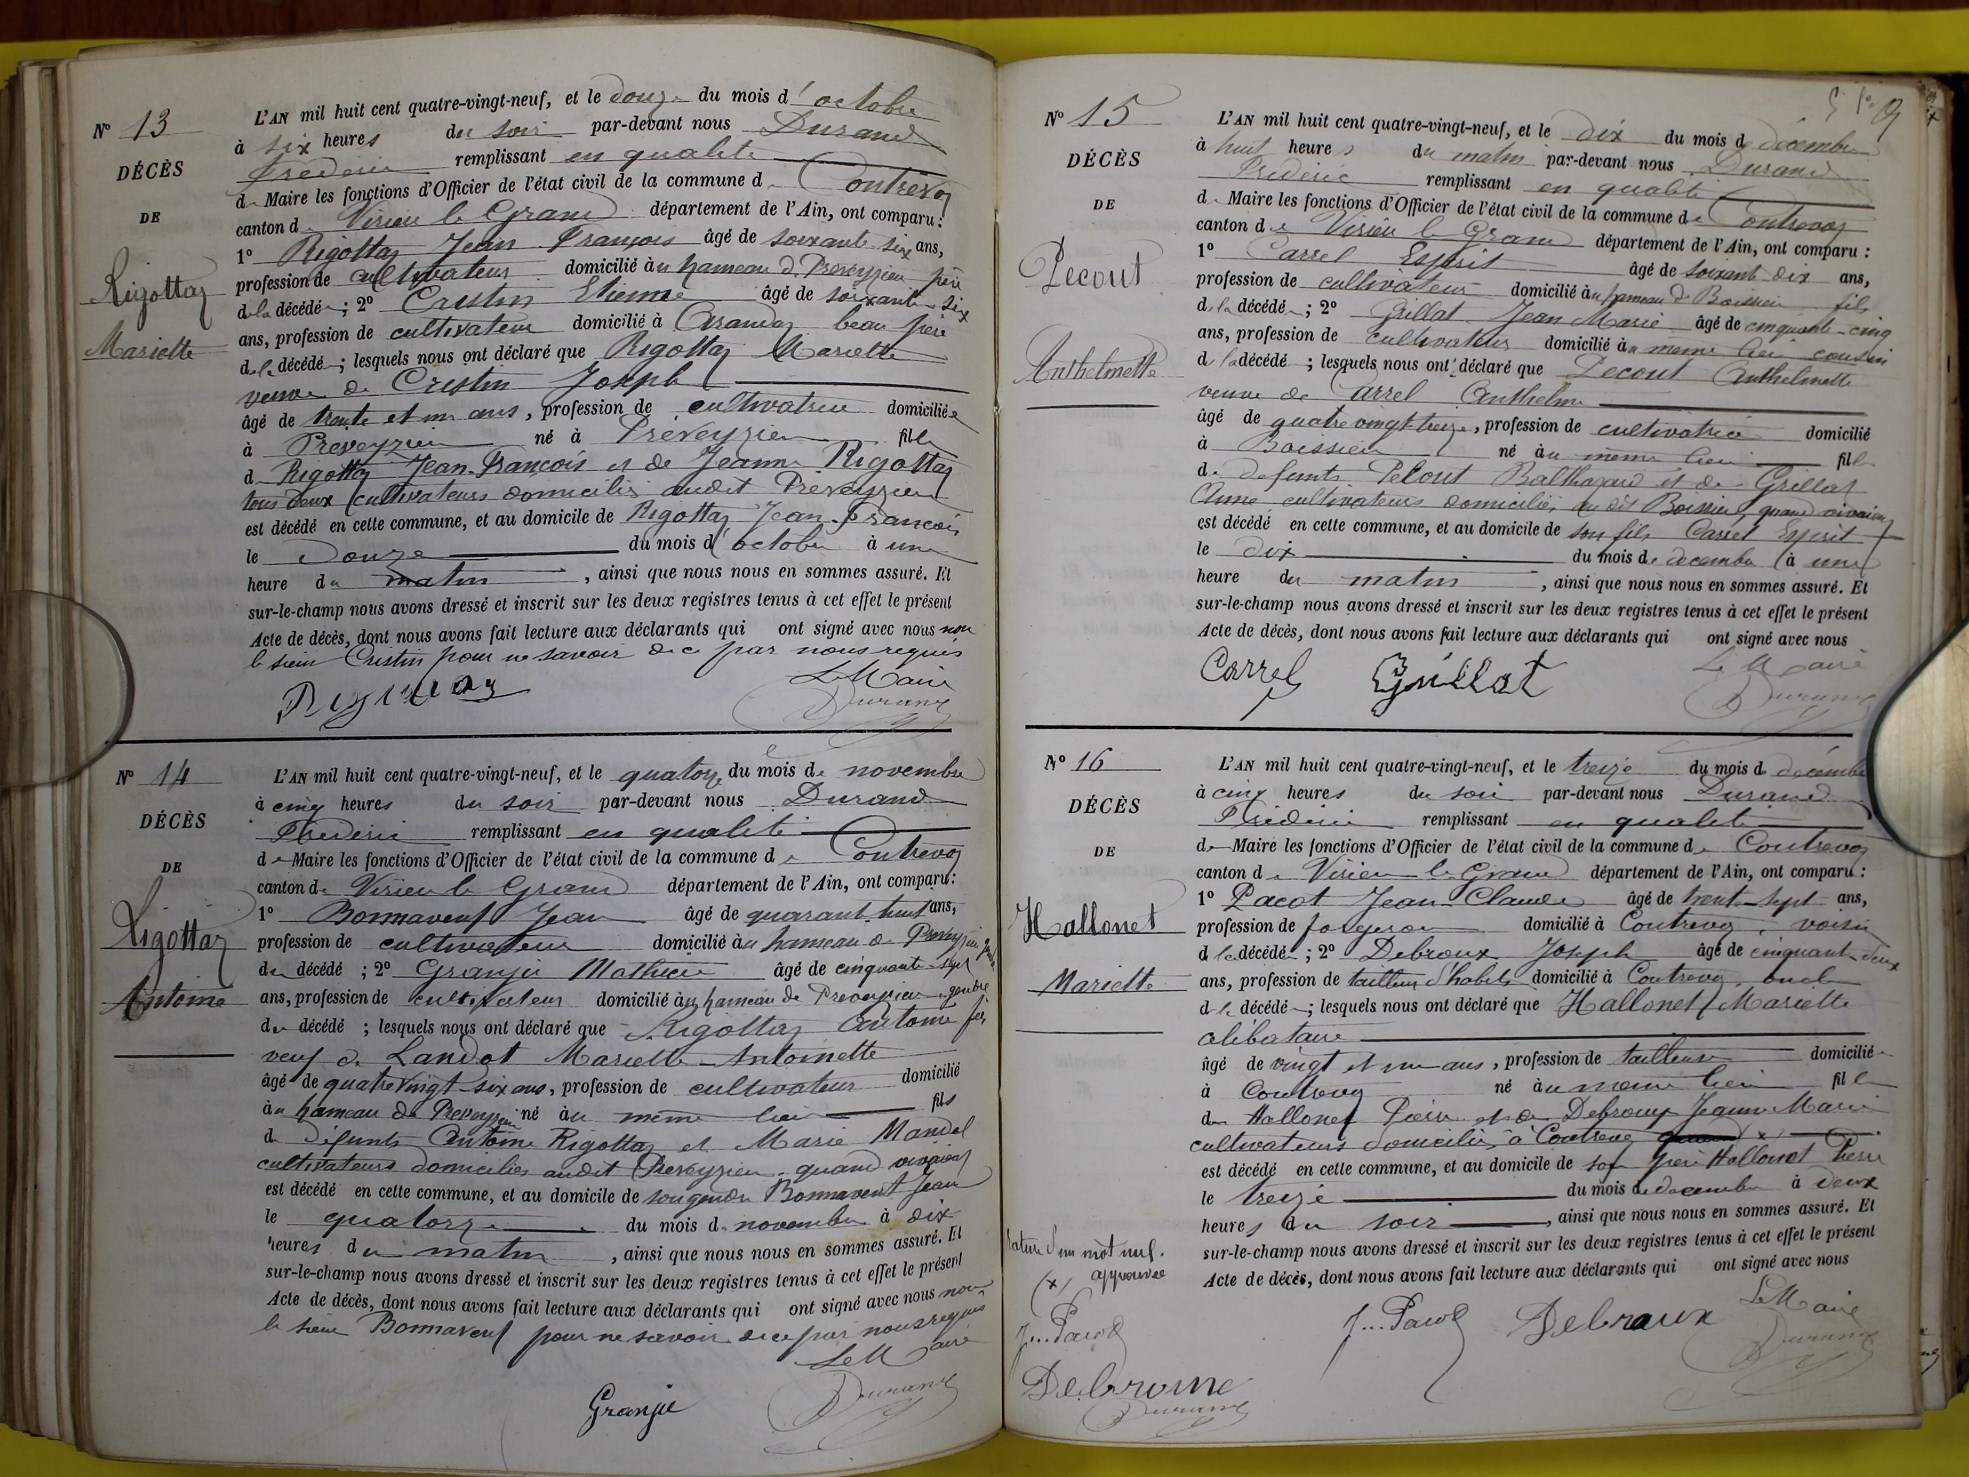 N° 13
DÉCÈS
DE
Rigottaz
Mariette
L'AN mil huit cent quatre-vingt-neuf, et le douze du mois d'octobre
à six heures du soir par-devant nous Durand
Frédéric remplissant en qualité
de Maire les fonctions d'Officier de l'état civil de la commune de Contrevoz
canton de Virieu le Grand département de l'Ain, ont comparu :
1° Rigottaz Jean François âgé de soixante six ans,
profession de cultivateur domicilié au hameau de Preveyzieu père
de la décédée ; 2° Cristin Etienne âgé de soixante six
ans, profession de cultivateur domicilié à Arandaz beau père
de la décédée ; lesquels nous ont déclaré que Rigottaz Mariette
veuve de Cristin Joseph
âgé de trente et un ans, profession de cultivatrice domiciliée
à Preveyzieu né à Preveyzieu fille
de Rigottaz Jean-François et de Jeanne Rigottaz
tous deux cultivateurs domiciliés audit Preveyzieu
est décédé en cette commune, et au domicile de Rigottaz Jean-François
le douze du mois d'octobre à une
heure du matin, ainsi que nous nous en sommes assuré. Et
sur-le-champ nous avons dressé et inscrit sur les deux registres tenus à cet effet le présent
Acte de décès, dont nous avons fait lecture aux déclarants qui ont signé avec nous non
le sieur Cristin pour ne savoir de ce par nous requis
Le Maire
Durand
N° 14
DÉCÈS
DE
Rigottaz
Antoine
L'AN mil huit cent quatre-vingt-neuf, et le quatorze du mois de novembre
à cinq heures du soir par-devant nous Durand
Frédéric remplissant en qualité
de Maire les fonctions d'Officier de l'état civil de la commune de Contrevoz
canton de Virieu le Grand département de l'Ain, ont comparu :
1° Bonnaveuf Jean âgé de quarante huit ans,
profession de cultivateur domicilié au hameau de Preveyzieu gendre
du décédé ; 2° Granjü Mathieu âgé de cinquante sept
ans, profession de cultivateur domicilié au hameau de Preveyzieu gendre
du décédé ; lesquels nous ont déclaré que Rigottaz Antoine
veuf de Landot Mariette Antoinette
âgé de quatre vingt-six ans, profession de cultivateur domicilié
au hameau de Preveyzieu né au même lieu fils
de défunts Antoine Rigottaz et Marie Mandel
cultivateurs domiciliés audit Preveyzieu quand vivaient
est décédé en cette commune, et au domicile de son gendre Bonnaveuf Jean
le quatorze du mois de novembre à dix
heures du matin, ainsi que nous nous en sommes assuré. Et
sur-le-champ nous avons dressé et inscrit sur les deux registres tenus à cet effet le présent
Acte de décès, dont nous avons fait lecture aux déclarants qui ont signé avec nous non
le sieur Bonnaveuf pour ne savoir de ce par nous requis
Le Maire
Durand
N° 15
DÉCÈS
DE
Pecout
Anthelmette
L'AN mil huit cent quatre-vingt-neuf, et le dix du mois de décembre
à huit heures du matin par-devant nous Durand
Frédéric remplissant en qualité
de Maire les fonctions d'Officier de l'état civil de la commune de Contrevoz
canton de Virieu le Grand département de l'Ain, ont comparu :
1° Carrel Esprit âgé de soixante dix ans,
profession de cultivateur domicilié au hameau de Boissieu fils
de la décédée ; 2° Grillat Jean Marie âgé de cinquante-cinq
ans, profession de cultivateur domicilié au même lieu cousin
de la décédé ; lesquels nous ont déclaré que Pecout Anthelmette
veuve de Carrel Anthelme
âgé de quatre vingt treize, profession de cultivatrice domicilié
à Boissieu né au même lieu fille
de défunts Pecout Balthazard et de Grillat
Anne cultivateurs domiciliés au dit Boissieu quand vivaient
est décédé en cette commune, et au domicile de son fils Carrel Esprit
le dix du mois de décembre à une
heure du matin, ainsi que nous nous en sommes assuré. Et
sur-le-champ nous avons dressé et inscrit sur les deux registres tenus à cet effet le présent
Acte de décès, dont nous avons fait lecture aux déclarants qui ont signé avec nous
Carrel Grillat
Le Maire
Durand
N° 16
DÉCÈS
DE
Hallonet
Mariette
L'AN mil huit cent quatre-vingt-neuf, et le treize du mois de décembre
à cinq heures du soir par-devant nous Durand
Frédéric remplissant en qualité
de Maire les fonctions d'Officier de l'état civil de la commune de Contrevoz
canton de Virieu le Grand département de l'Ain, ont comparu :
1° Pacot Jean-Claude âgé de trente-sept ans,
profession de forgeron domicilié à Contrevoz, voisin
de la décédée ; 2° Debroux Joseph âgé de cinquante-deux
ans, profession de tailleur d'habits domicilié à Contrevoz oncle
de la décédée ; lesquels nous ont déclaré que Hallonet Mariette
célibataire
âgé de vingt et un ans, profession de tailleuse domiciliée
à Contrevoz né au même lieu fille
de Hallonet Pierre et de Debroux Jeanne Marie
cultivateurs domiciliés à Contrevoz (x)
est décédé en cette commune, et au domicile de son père Hallonet Pierre
le treize du mois de décembre à deux
heures du soir, ainsi que nous nous en sommes assuré. Et
sur-le-champ nous avons dressé et inscrit sur les deux registres tenus à cet effet le présent
Acte de décès, dont nous avons fait lecture aux déclarants qui ont signé avec nous
rature d'un mot nul.
(x) approuvée
J... Pacot
Debroux
Durand
J... Pacot Debroux
Le Maire
Durand